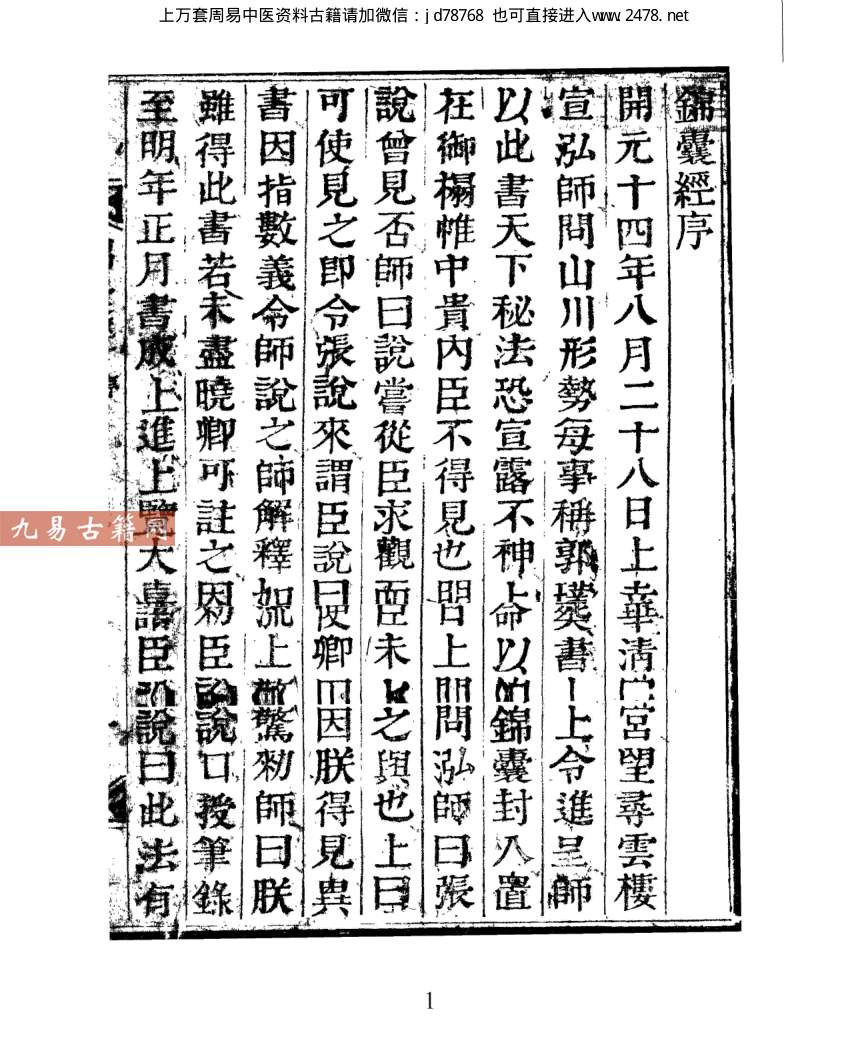 上万套周易中医资料古籍请加微信：jd78768 也可直接进入www.2478.net
錦囊經序
開元十四年八月二十八日上幸華清宮望尋雲樓
宣泓師問山川形勢每事稱郭璞書上令進呈師
以此書天下秘法恐宣露不神上命以錦囊封入置
在御榻帷中貴內臣不得見也上問泓師曰張
說曾見否師曰說嘗從臣求觀而臣未之與也上曰
可使見之即令張說來謂臣說曰卿因朕得見異
書因指數義令師說之師解釋如流上驚勑師曰朕
雖得此書若未盡曉卿可註之因勑臣說口授筆錄
至明年正月書成上進上覽大嘉臣說曰此法有
九易古籍
1